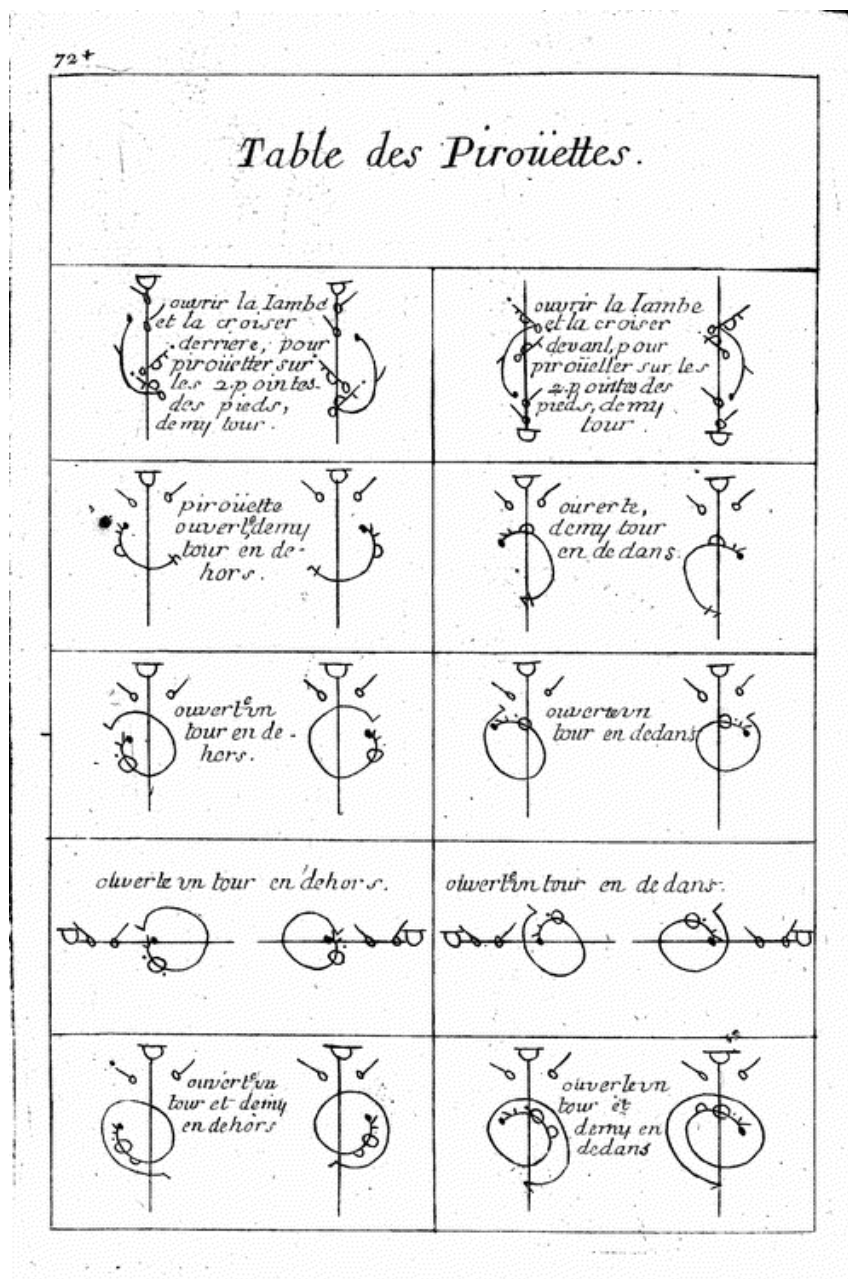 72+
Table des Piroüettes.
ouvrir la Iambe
et la croiser
derriere, pour
piroüetter sur
les 2. pointes
des pieds,
demy tour.
ouvrir la Iambe
et la croiser
devant, pour
piroüetter sur les
2. pointes des
pieds, demy
tour
piroüette
ouverte, demy
tour en de-
hors.
ouverte,
demy tour
en dedans.
ouverte vn
tour en de-
hors.
ouverte vn
tour en dedans
ouverte vn tour en dehors.
ouverte vn tour en dedans.
ouverte vn
tour et demy
en dehors
ouverte vn
tour et
demy en
dedans